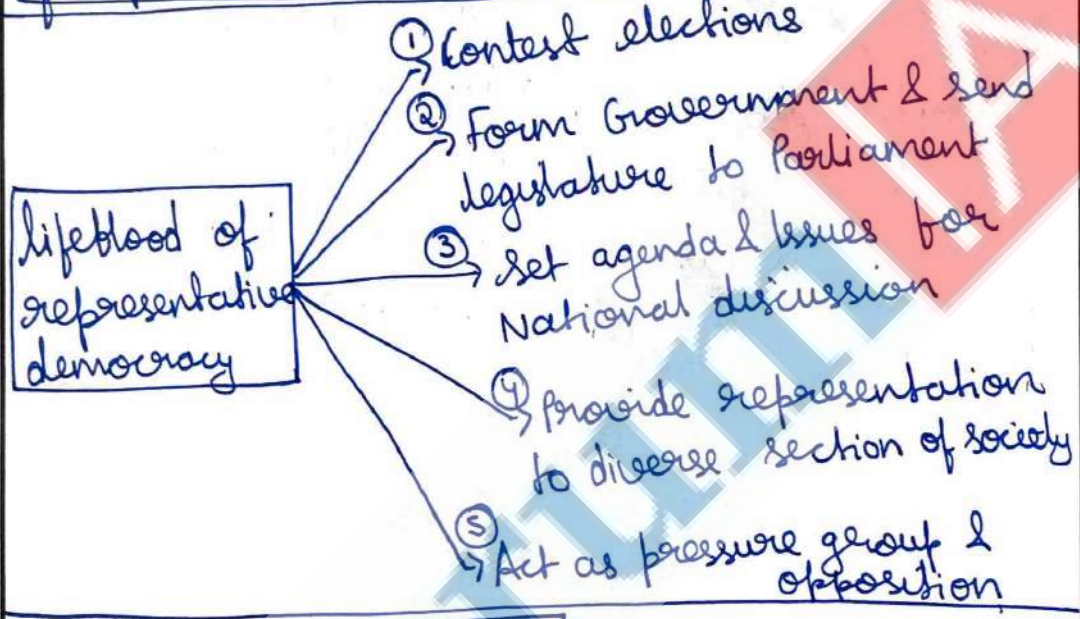 lifeblood of
representative
democracy
① Contest elections
② Form Government & send
legislature to Parliament
③ Set agenda & Issues for
National discussion
④ Provide representation
to diverse section of society
⑤ Act as pressure group &
opposition